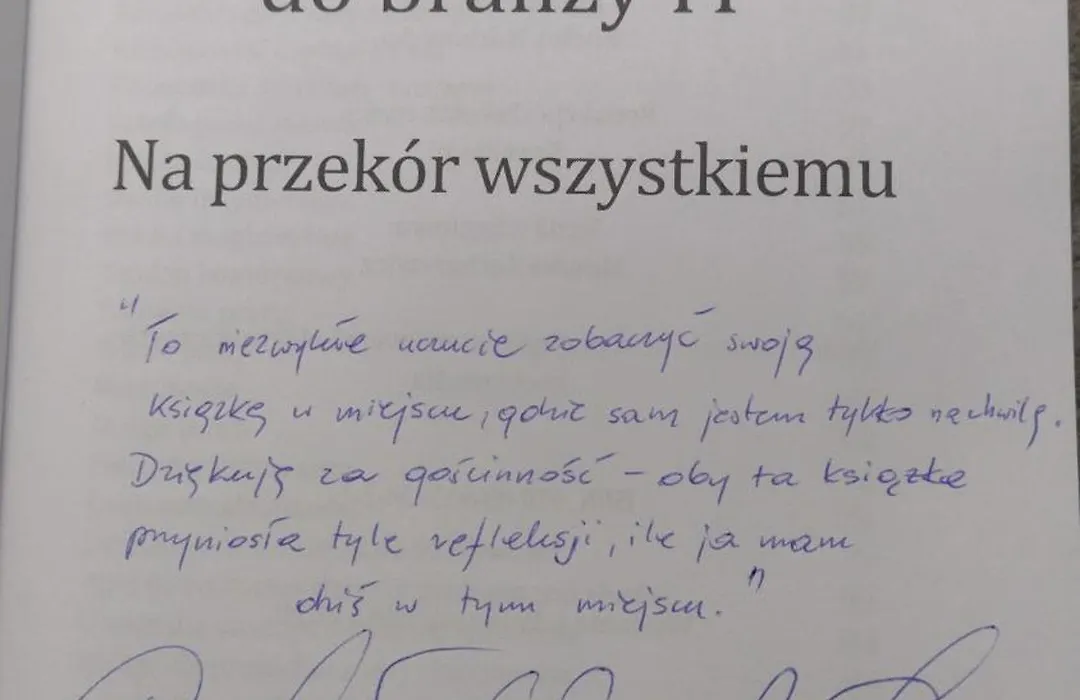 do branży IT
Na przekór wszystkiemu
"To niezwykłe uczucie zobaczyć swoją
książkę w miejscu, gdzie sam jestem tylko na chwilę.
Dziękuję za gościnność – oby ta książka
przyniosła tyle refleksji, ile ja mam
dziś w tym miejscu."